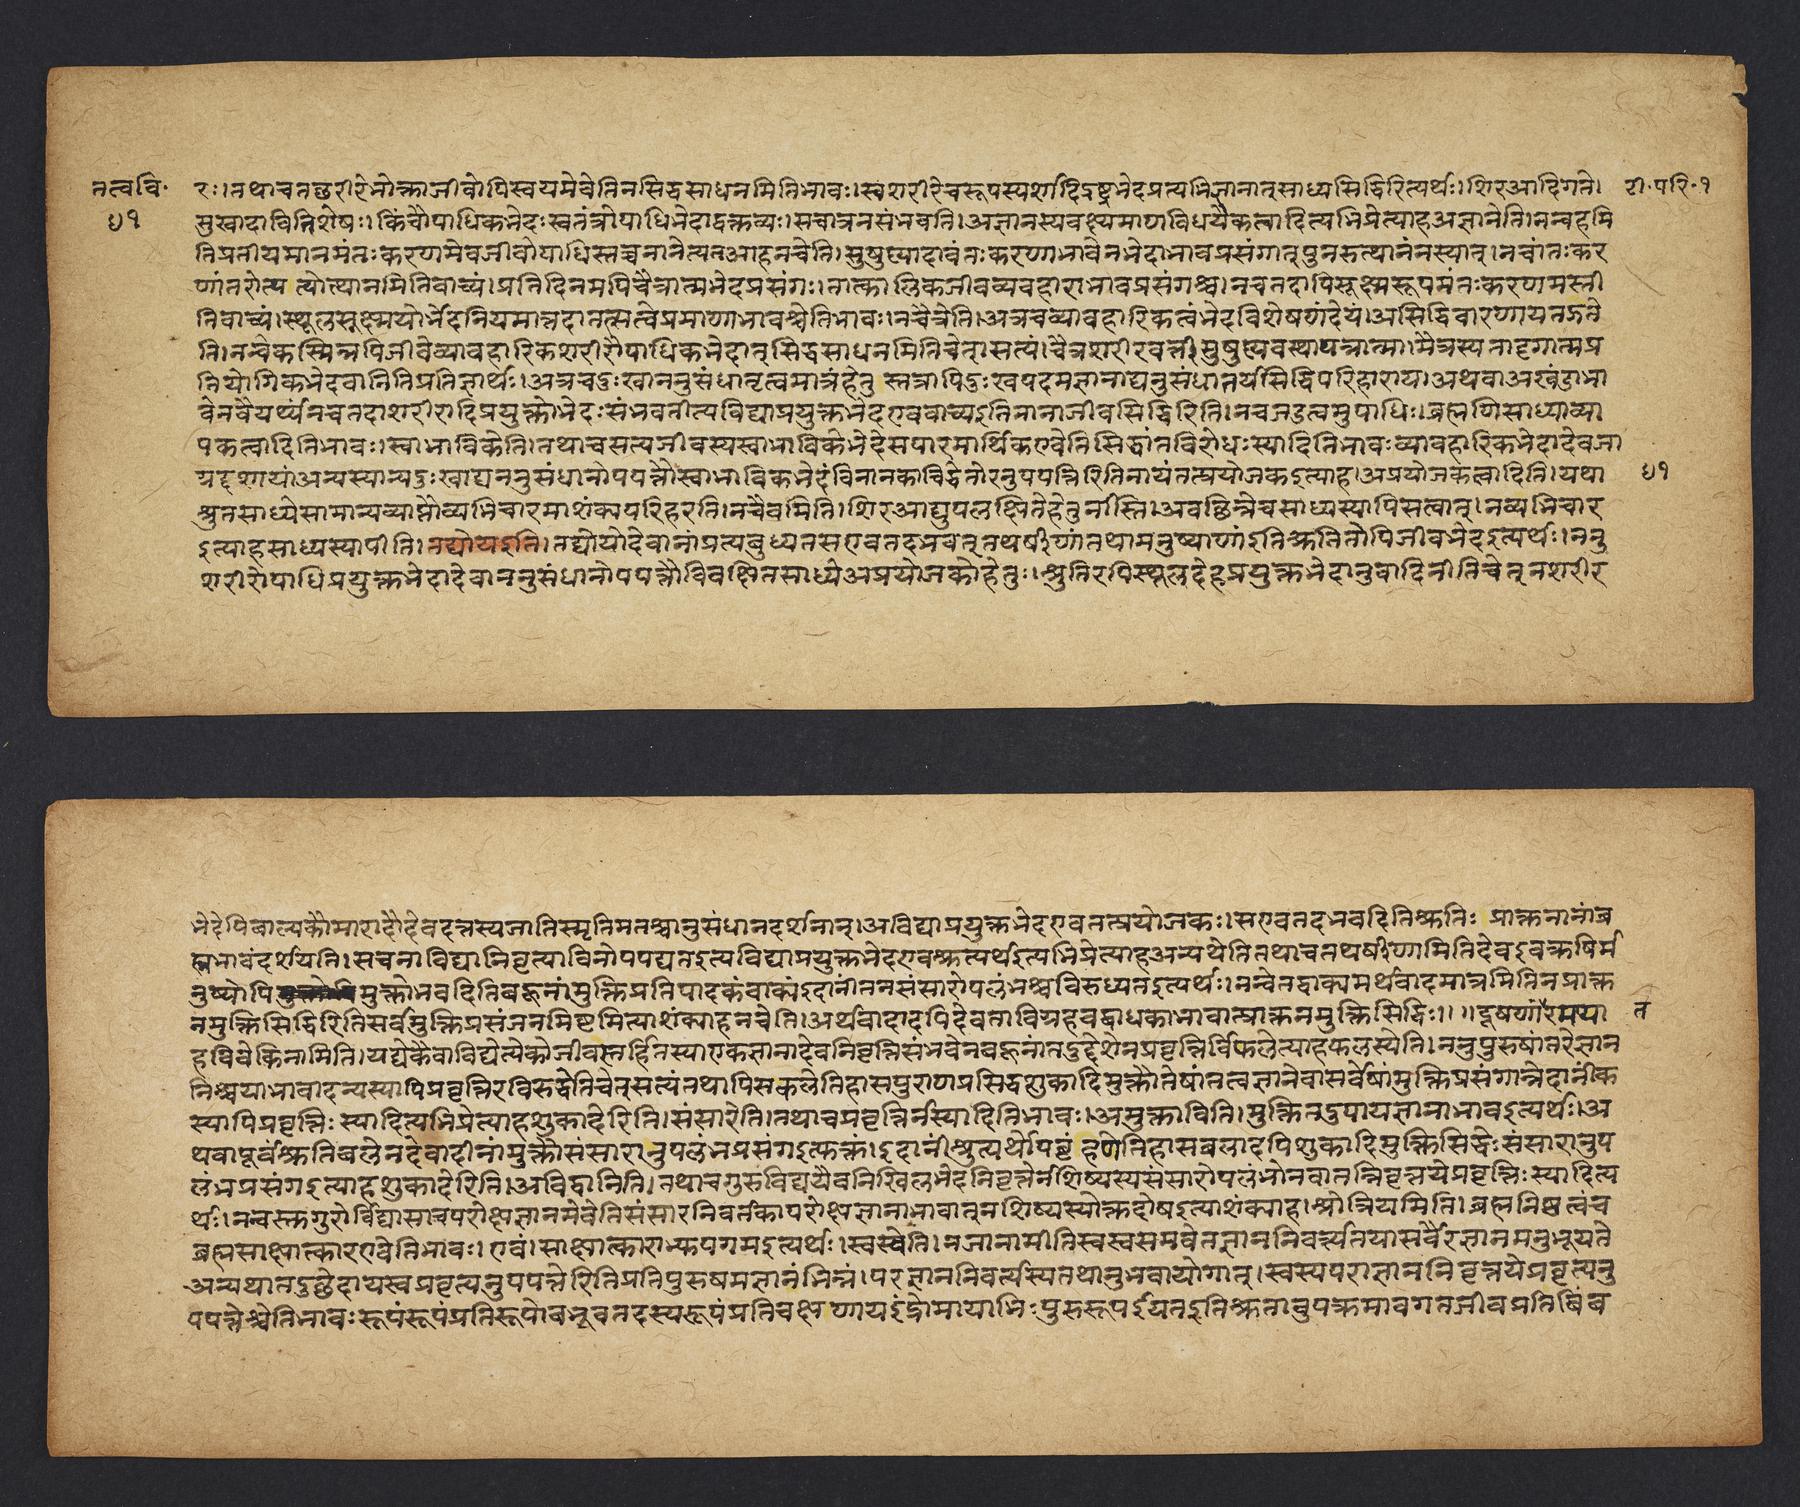 तत्वविः
५१
टी॰परि॰१
रः।तथाचतच्छरीरेभोक्ताजीवोपिस्वयमेवेतिनसिद्धसाधनमितिभावः।स्वशरीरेचरूपस्पर्शादिद्रष्टृभेदप्रत्यभिज्ञानात्साध्यसिद्धिरित्यर्थः।शिरआदिगते।
सुखादावितिशेषः।किंचौपाधिकभेदःस्वतंत्रोपाधिभेदाद्वक्तव्यः।सचात्रनसंभवति।अज्ञानस्यवक्ष्यमाणविधयैकत्वादित्यभिप्रेत्याहअज्ञानेति।नन्वहमि
तिप्रतीयमानमंतःकरणमेवजीवोपाधिस्तच्चनानेत्यतआहनचेति।सुषुप्त्यादावंतःकरणाभावेनभेदाभावप्रसंगात्पुनरुत्थानंनस्यात्।नचांतःकर
णांतरोत्प त्योत्थानमितिवाच्यं।प्रतिदिनमपिचैत्रात्मभेदप्रसंगः।तात्कालिकजीवव्यवहाराभावप्रसंगश्च।नचतदापिसूक्ष्मरूपमंतःकरणमस्ती
तिवाच्यं।स्थूलसूक्ष्मयोर्भेदनियमात्तदातत्सत्वेप्रमाणाभावश्चेतिभावः।नचैत्रेति।अत्रचव्यावहारिकत्वंभेदविशेषणंदेयं।असिद्धिवारणायतज्ञे
ति।नन्वेकस्मिन्नपिजीवेव्यावहारिकशरीरौपाधिकभेदात्सिद्धसाधनमितिचेत्।सत्यं।चैत्रशरीरवर्त्तीसुषुप्त्यवस्थापन्नात्मा।मैत्रस्यतादृगात्मप्र
तियोगिकभेदवानितिप्रतिज्ञार्थः।अत्रचदुःखाननुसंधातृत्वमात्रंहेतु स्तत्रापिदुःखपदमज्ञानाद्यनुसंधातर्यसिद्धिपरिहाराय।अथवाअखंडाभा
वेनवैयर्थ्यंनचतदाशरीरादिप्रयुक्तोभेदःसंभवतीत्यविद्याप्रयुक्तभेदएववाच्यइतिनानाजीवसिद्धिरिति।नचजडत्वमुपाधिः।ब्रह्मणिसाध्याव्या
पकत्वादितिभावः।स्वाभाविकेति।तथाचसत्यजीवस्यस्वाभाविकेभेदेसपारमार्थिकएवेतिसिद्धांतविरोधःस्यादितिभावःव्यावहारिकभेदादेवजा
यद्दशायांअन्यस्यान्यदुःखाद्यननुसंधानोपपत्तौस्वाभाविकभेदंविनानकाचिद्धेतोरनुपपत्तिरितिनायंतत्प्रयोजकइत्याह।अप्रयोजकत्वादिति।यथा
५१
श्रुतसाध्येसामान्यव्याप्तौव्यभिचारमाशंक्यपरिहरति।नचैवमिति।शिरआद्युपलक्षितेहेतुर्नास्ति।अवच्छिन्नेचसाध्यस्यापिसत्वात्।नव्यभिचार
इत्याहसाध्यस्यापीति।तद्योयइति।तद्योयोदेवानांप्रत्यबुध्यतसएवतदभवत्तथषीणांतथामनुष्याणांइतिश्रुतितोपिजीवभेदइत्यर्थः।ननु
शरीरोपाधिप्रयुक्तभेदादेवाननुसंधानोपपत्तौविवक्षितसाध्येअप्रयोजकोहेतुः।श्रुतिरपिस्थूलदेहप्रयुक्तभेदानुवादिनीतिचेत्नशरीर
भेदेपिबाल्यकौमारादौदेवदत्तस्यजातिस्मृतिमतश्चानुसंधानदर्शनात्।अविद्याप्रयुक्तभेदएवतत्प्रयोजकः।सएवतदभवदितिश्रुतिः प्राक्तनानांब्र
ह्मभावंदर्शयति।सचनाविद्यानिवृत्त्याविनोपपद्यतइत्यविद्याप्रयुक्तभेदएवश्रुत्यर्थइत्यभिप्रेत्याहअन्यथेतितथाचतथषीणामितिदेवइवऋषिर्म
नुष्योपिमुक्तोभवदितिबहूनांमुक्तिप्रतिपादकंवाक्यंइदानींतनसंसारोपलंभश्चविरुध्यतइत्यर्थः।नन्वेतद्वाक्यमर्थवादमात्रमितिनप्राक्त
नमुक्तिसिद्धिरितिसर्वमुक्तिप्रसंजनमिष्टमित्याशंक्याहनचेति।अर्थवादादपिदेवताविग्रहवद्बाधकाभावात्प्राक्तनमुक्तिसिद्धिः।।।दूषणांरमप्या
त
हविवेकिनामिति।यद्येकैवाविद्येत्येकोजीवस्तर्हितस्याएकज्ञानादेवनिवृत्तिसंभवेनबहूनांतदुद्देशेनप्रवृत्तिर्विफलेत्याहफलस्येति।ननुपुरुषांतरेज्ञान
निश्चयाभावादन्यस्यापिप्रवृत्तिरविरुद्धेतिचेत्सत्यंतथापिसकलेतिहासपुराणप्रसिद्धशुकादिमुक्तौतेषांतत्वज्ञानेवासर्वेषांमुक्तिप्रसंगान्नेदानींक
स्यापिप्रवृत्तिः स्यादित्यभिप्रेत्याहशुकादेरिति।संसारेति।तथाचप्रवृत्तिर्नस्यादितिभावः।अमुक्ताविति।मुक्तितदुपायज्ञानाभावइत्यर्थः।अ
थवापूर्वंश्रुतिबलेनदेवादीनांमुक्तौसंसारानुपलंभप्रसंगइत्युक्तं।इदानींश्रुत्यर्थोपबृंहणेतिहासबलादपिशुकादिमुक्तिसिद्धेःसंसारानुप
लंभप्रसंगइत्याहशुकादेरिति।अविद्वानिति।तथाचगुरुंविद्ययैवनिखिलभेदनिवृत्तेर्नशिष्यस्यसंसारोपलंभोनवातन्निवृत्तयेप्रवृत्तिःस्यादित्य
र्थः।नचस्क्तगुरोर्विद्यासाचपरोक्षज्ञानमेवेतिसंसारनिवर्तकापरोक्षज्ञानाभावात्नशिष्यस्योक्तदोषइत्याशंक्याह।श्रोत्रियमिति।ब्रह्मनिष्ठत्वंच
ब्रह्मसाक्षात्कारएवेतिभावः।एवं।साक्षात्काराभ्युपगमइत्यर्थः।स्वस्वेति।नजानामीतिस्वस्वसमवेतज्ञाननिवर्त्त्यतयासर्वैरज्ञानमनुभूयते
अन्यथातदुच्छेदायस्वप्रवृत्त्यनुपपत्तेरितिप्रतिपुरुषमज्ञानंभिन्नं।परज्ञाननिवर्त्यस्यतथानुभवायोगात्।स्वस्यपराज्ञाननिवृत्तयेप्रवृत्त्यनु
पपत्तेश्चेतिभावःरूपंरूपंप्रतिरूपोबभूवतदस्यरूपंप्रतिचक्ष णायइंद्रोमायाभिःपुरुरूपईयतइतिश्रुतावुपक्रमावगतजीवप्रतिबिंब